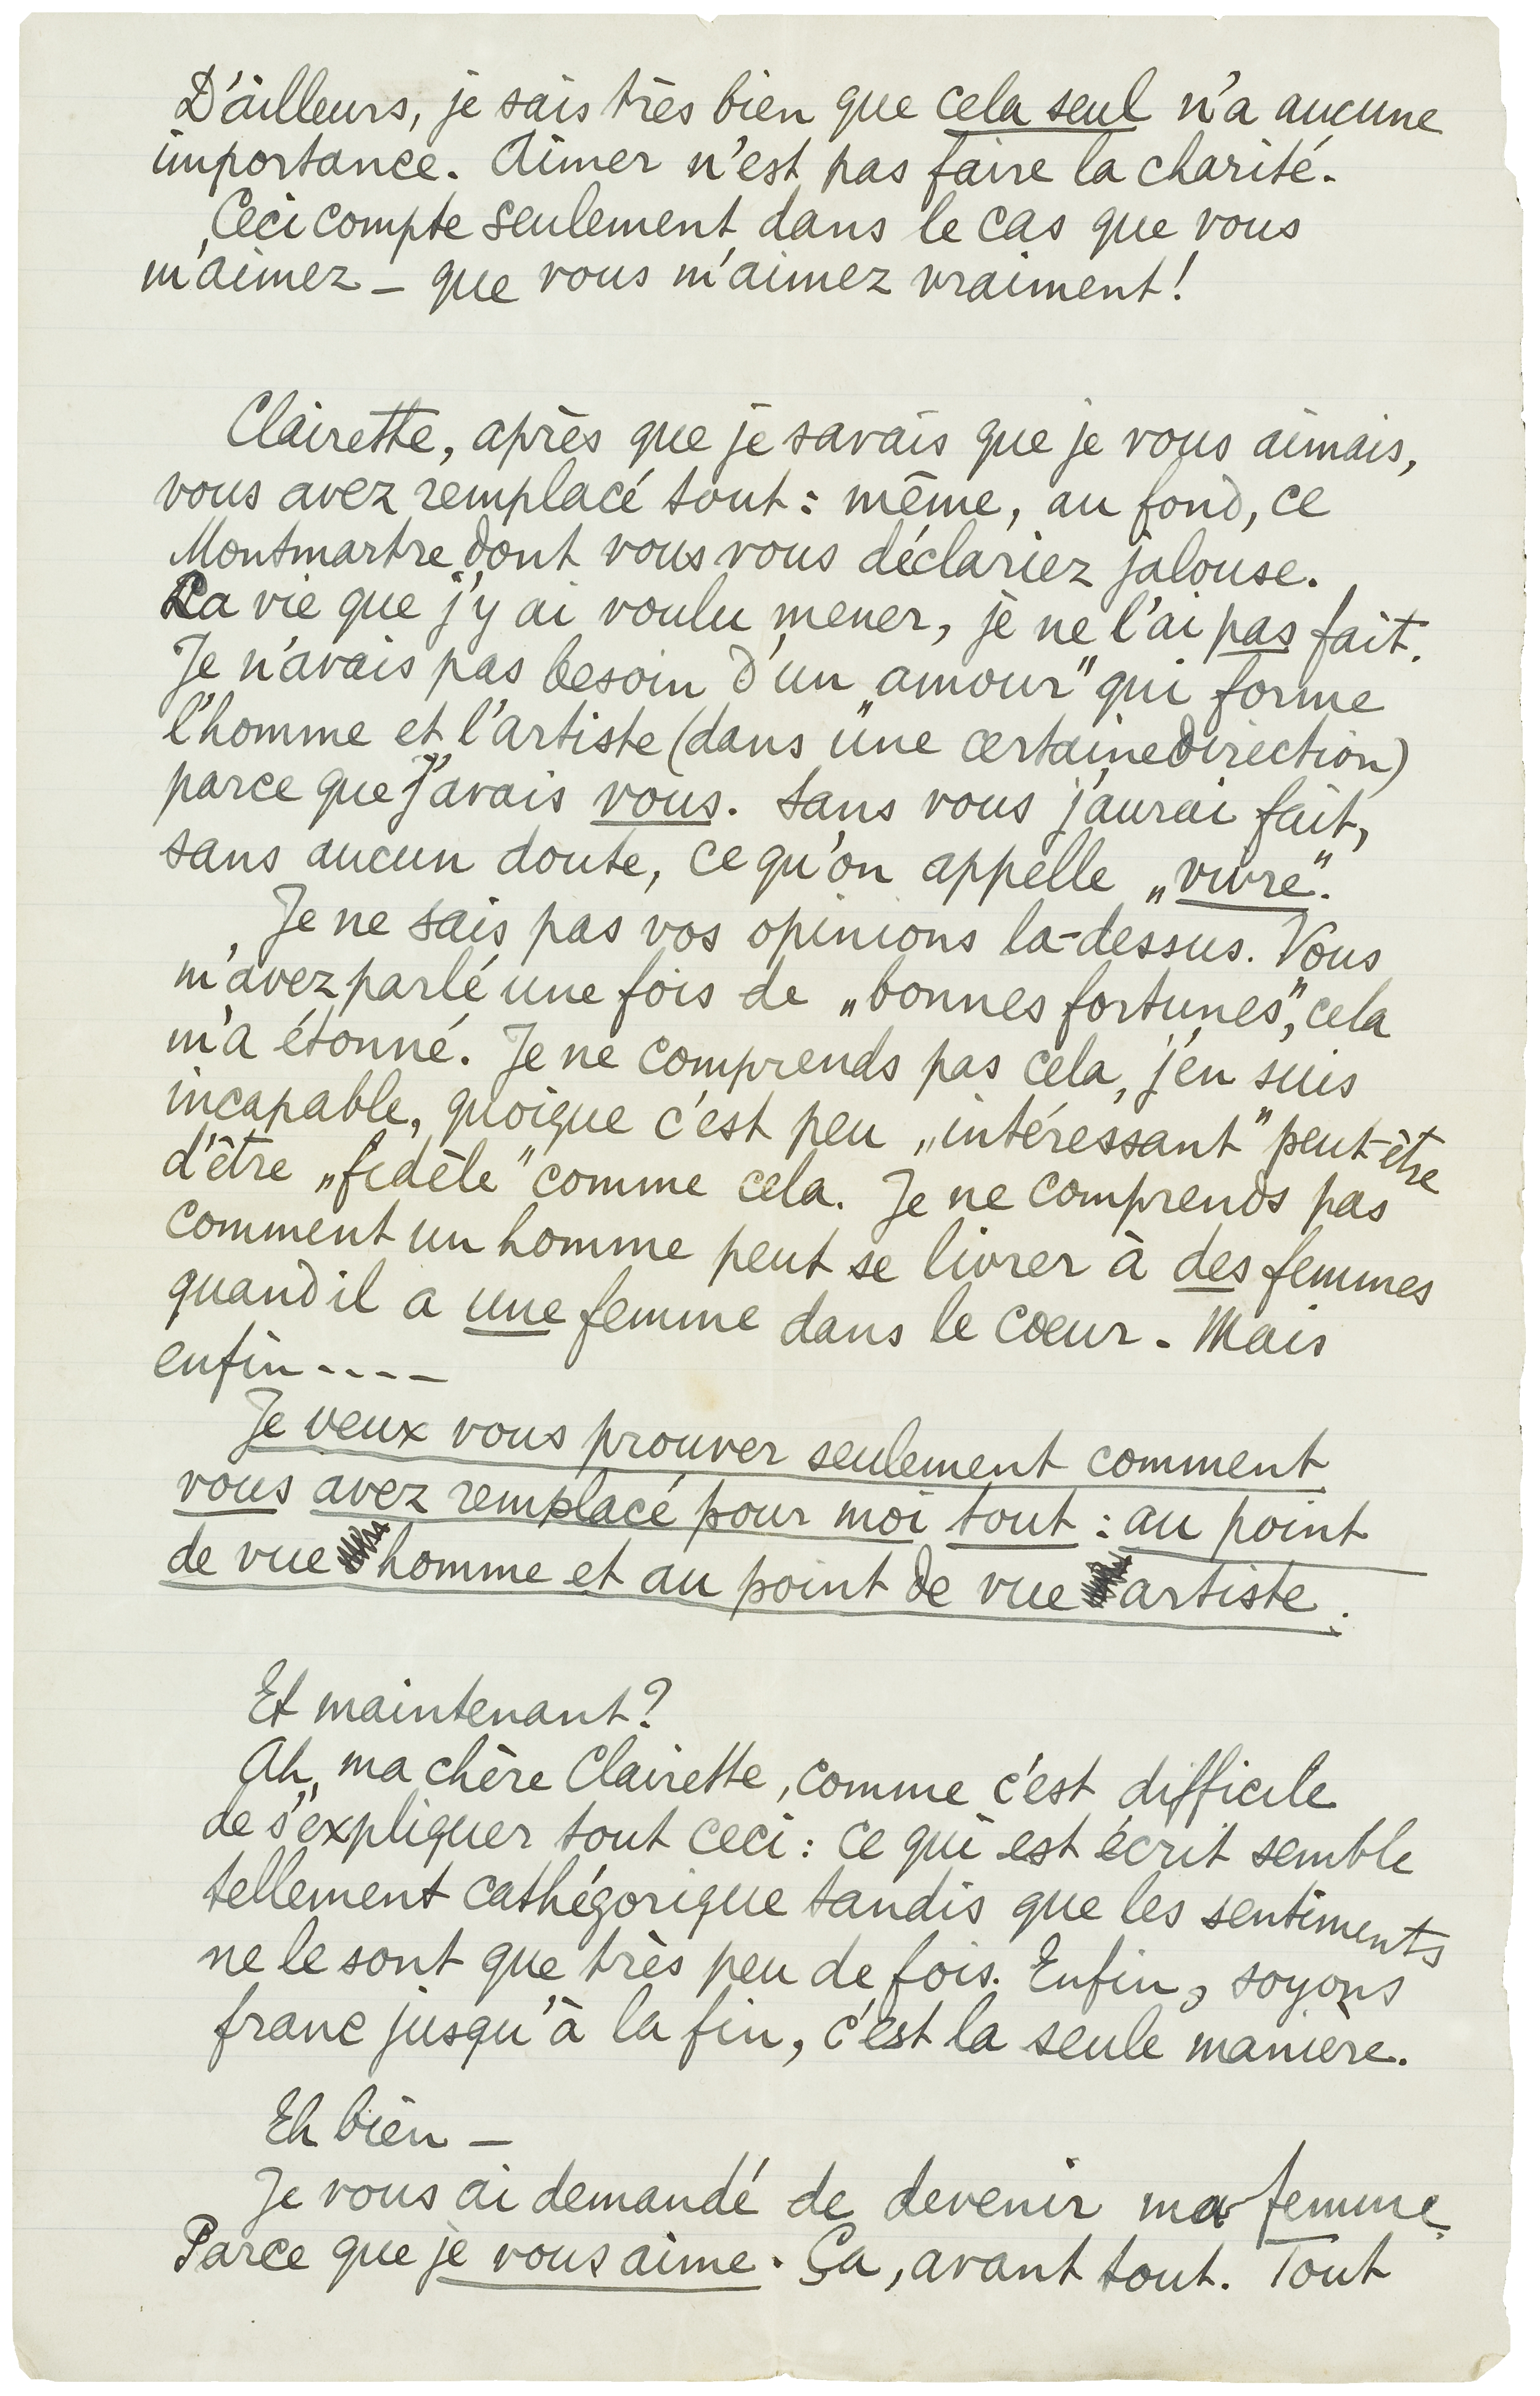 D'ailleurs, je sais très bien que cela seul n'a aucune
importance. Aimer n'est pas faire la charité.
Ceci compte seulement dans le cas que vous
m'aimez – que vous m'aimez vraiment!
Clairette, après que je savais que je vous aimais,
vous avez remplacé tout: même, au fond, ce
Montmartre dont vous vous déclariez jalouse.
La vie que j'y ai voulu mener, je ne l'ai pas fait.
Je n'avais pas besoin d'un „amour" qui forme
l'homme et l'artiste (dans une certaine direction)
parce que j'avais vous. Sans vous j'aurai fait,
sans aucun doute, ce qu'on appelle „vivre".
Je ne sais pas vos opinions la-dessus. Vous
m'avez parlé une fois de „bonnes fortunes", cela
m'a étonné. Je ne comprends pas cela, j'en suis
incapable, quoique c'est peu „intéressant" peut-être
d'être „fidèle" comme cela. Je ne comprends pas
comment un homme peut se livrer à des femmes
quand il a une femme dans le coeur. Mais
enfin ----
Je veux vous prouver seulement comment
vous avez remplacé pour moi tout: au point
de vue homme et au point de vue artiste.
Et maintenant?
Ah, ma chère Clairette, comme c'est difficile
de s'expliquer tout ceci: ce qui est écrit semble
tellement cathégorique tandis que les sentiments
ne le sont que très peu de fois. Enfin, soyons
franc jusqu'à la fin, c'est la seule manière.
Eh bien –
Je vous ai demandé de devenir ma femme.
Parce que je vous aime. Ça, avant tout. Tout